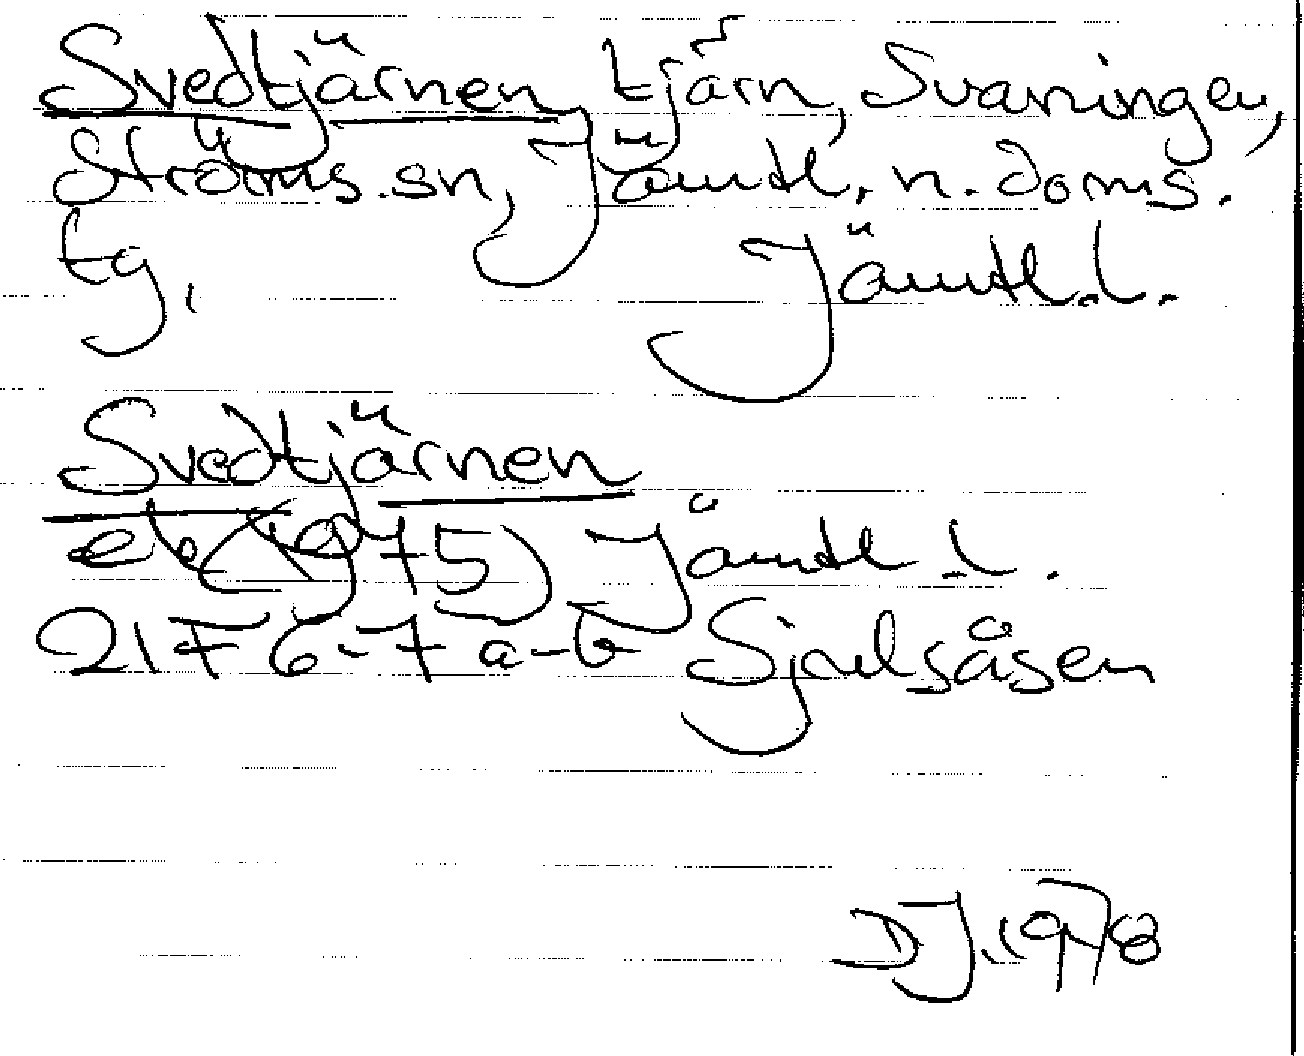 Svedtjärnen, tjärn, Svaningen,
Ströms sn, Jämtl. n. doms.
tg. Jämtl. l.
Svedtjärnen
ek (1975) Jämtl. l.
21 F 6-7 a-b Sjulsåsen
DJ. 1978